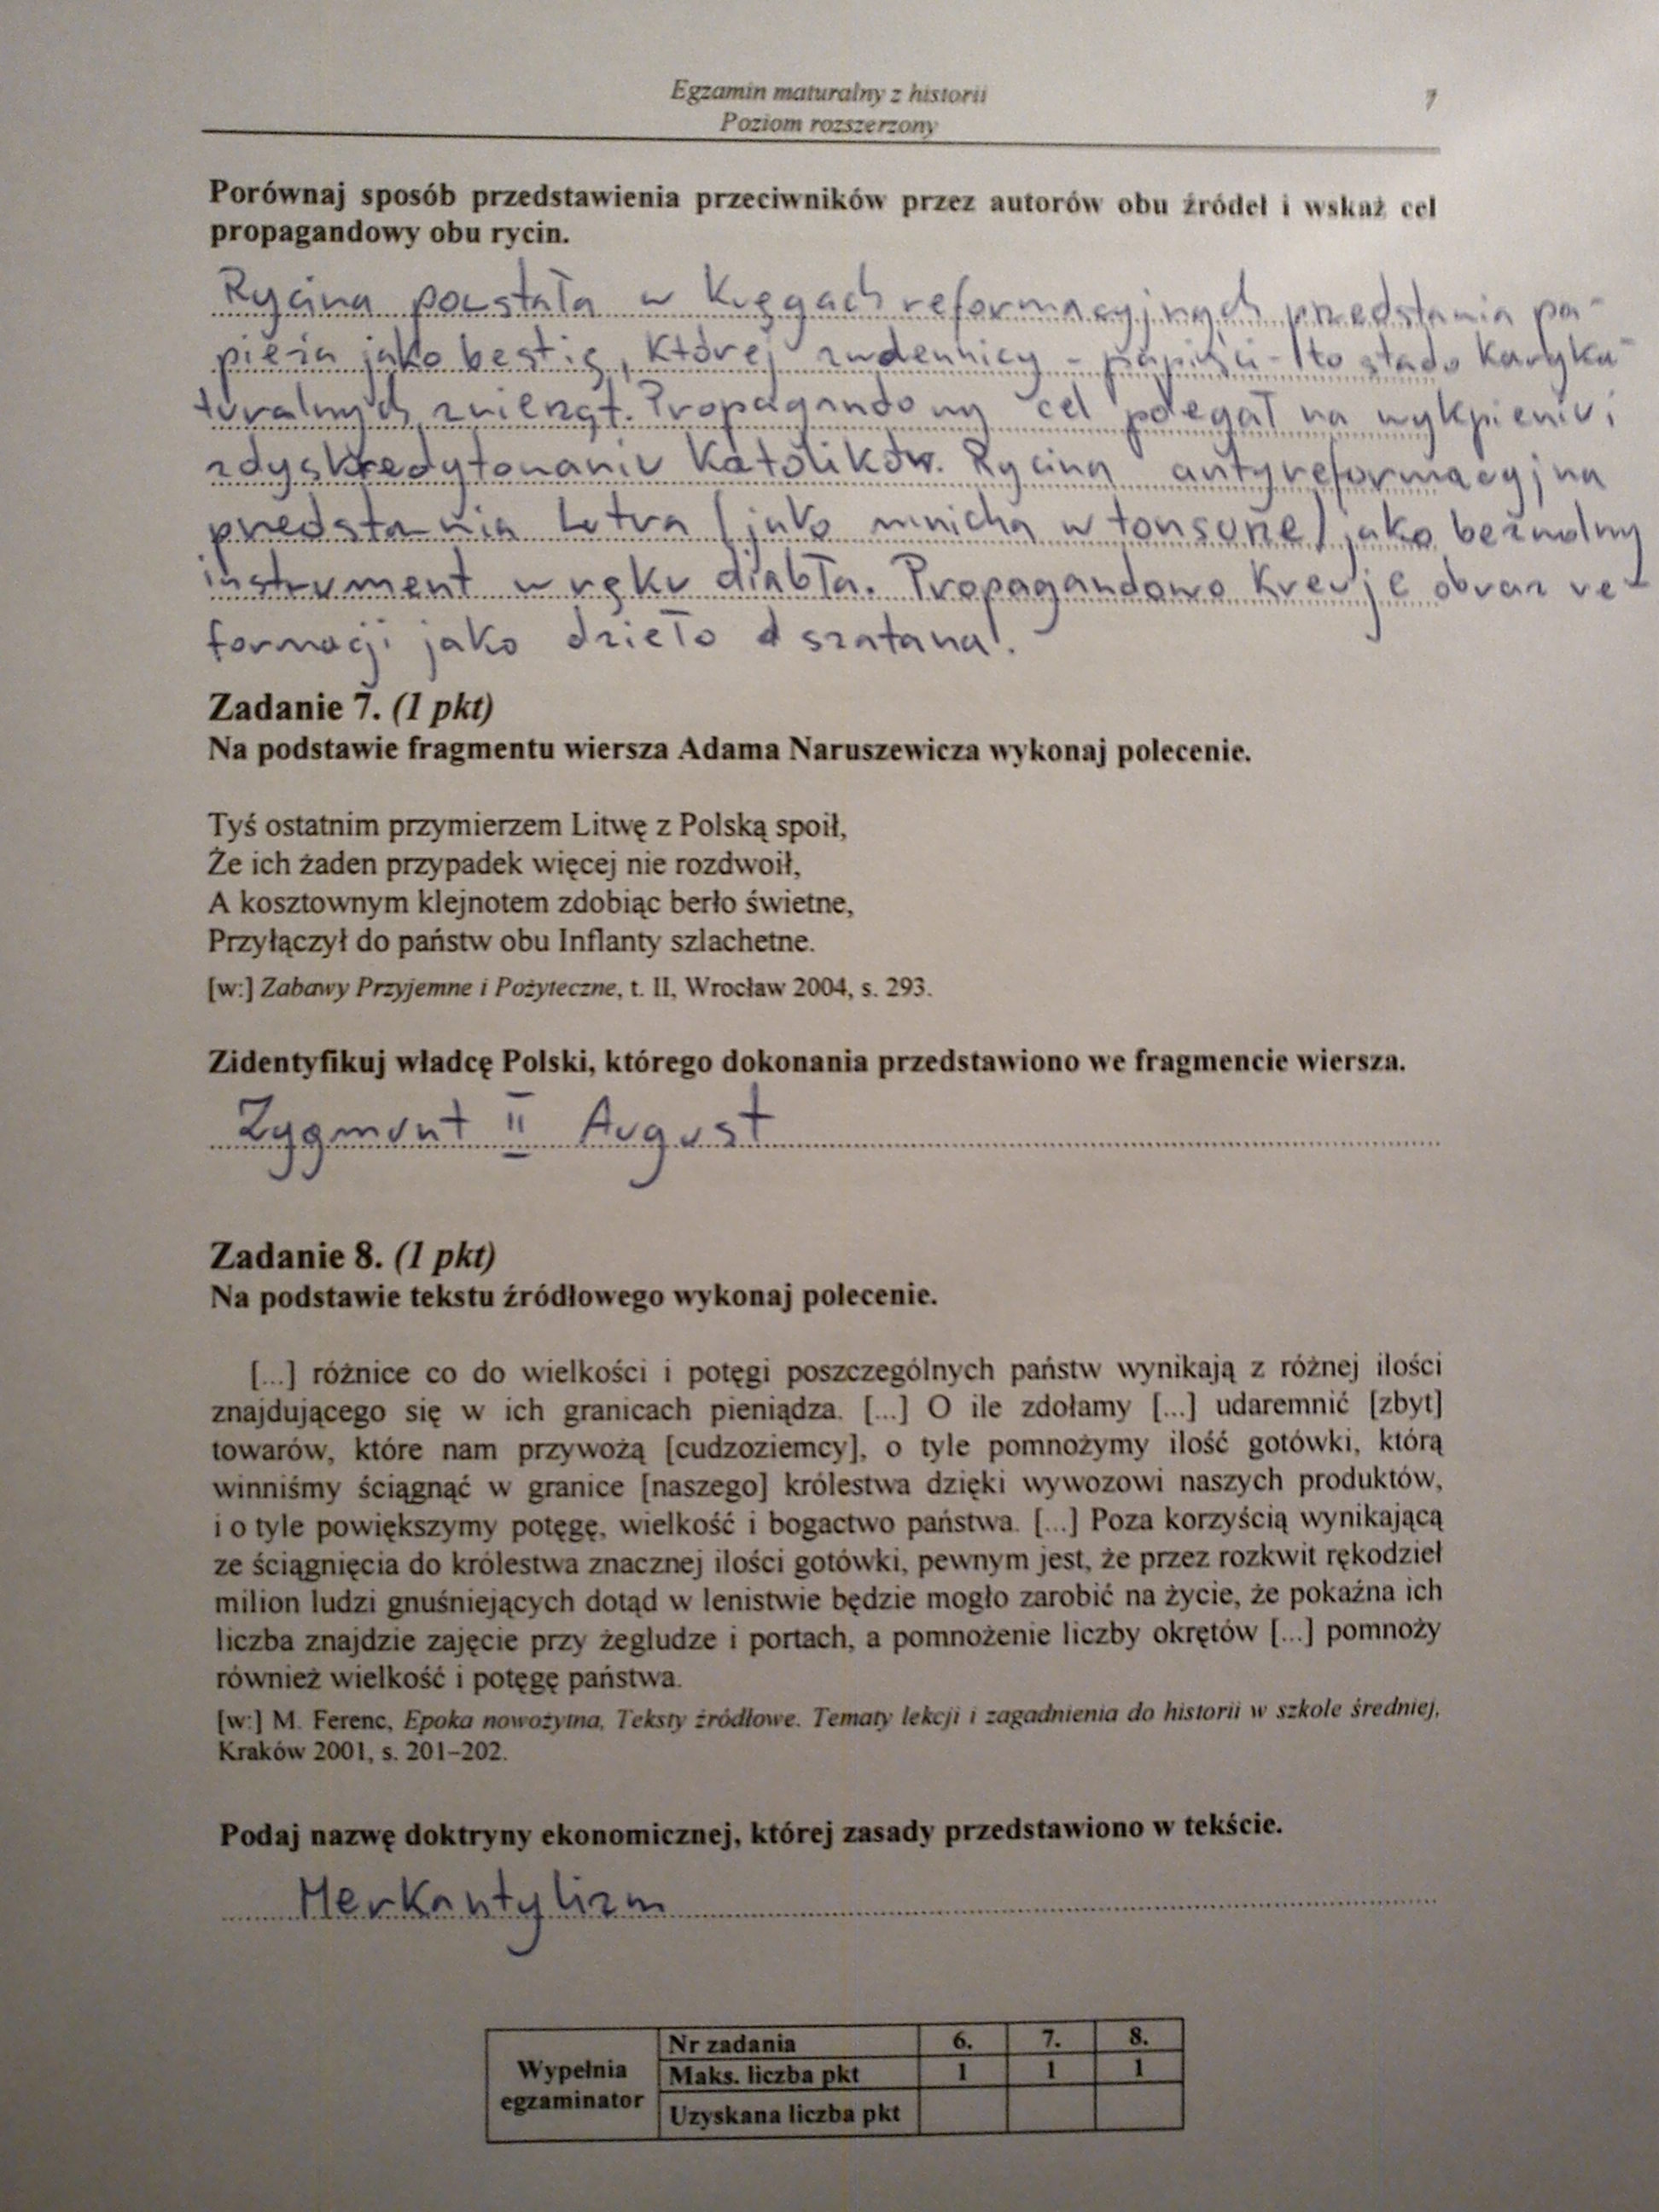 Egzamin maturalny z historii
7
Poziom rozszerzony
Porównaj sposób przedstawienia przeciwników przez autorów obu źródeł i wskaż cel
propagandowy obu rycin.
Rycina powstała w kręgach reformacyjnych przedstawia pa-
pieża jako bestię, której zwolennicy - papiści - to stado karyka-
turalnych zwierząt. Propagandowy cel polegał na wykpieniu i
zdyskredytowaniu katolików. Rycina antyreformacyjna
przedstawia Lutra (jako mnicha w tonsurze) jako bezwolny
instrument w ręku diabła. Propagandowo kreuje obraz re-
formacji jako dzieło szatana.
Zadanie 7. (1 pkt)
Na podstawie fragmentu wiersza Adama Naruszewicza wykonaj polecenie.
Tyś ostatnim przymierzem Litwę z Polską spoił,
Że ich żaden przypadek więcej nie rozdwoił,
A kosztownym klejnotem zdobiąc berło świetne,
Przyłączył do państw obu Inflanty szlachetne.
[w:] Zabawy Przyjemne i Pożyteczne, t. II, Wrocław 2004, s. 293.
Zidentyfikuj władcę Polski, którego dokonania przedstawiono we fragmencie wiersza.
Zygmunt II August
Zadanie 8. (1 pkt)
Na podstawie tekstu źródłowego wykonaj polecenie.
[...] różnice co do wielkości i potęgi poszczególnych państw wynikają z różnej ilości
znajdującego się w ich granicach pieniądza. [...] O ile zdołamy [...] udaremnić [zbyt]
towarów, które nam przywożą [cudzoziemcy], o tyle pomnożymy ilość gotówki, którą
winniśmy ściągnąć w granice [naszego] królestwa dzięki wywozowi naszych produktów,
i o tyle powiększymy potęgę, wielkość i bogactwo państwa. [...] Poza korzyścią wynikającą
ze ściągnięcia do królestwa znacznej ilości gotówki, pewnym jest, że przez rozkwit rękodzieł
milion ludzi gnuśniejących dotąd w lenistwie będzie mogło zarobić na życie, że pokaźna ich
liczba znajdzie zajęcie przy żegludze i portach, a pomnożenie liczby okrętów [...] pomnoży
również wielkość i potęgę państwa.
[w:] M. Ferenc, Epoka nowożytna, Teksty źródłowe. Tematy lekcji i zagadnienia do historii w szkole średniej,
Kraków 2001, s. 201–202.
Podaj nazwę doktryny ekonomicznej, której zasady przedstawiono w tekście.
Merkantylizm
Wypełnia egzaminator
Nr zadania 6. 7. 8.
Maks. liczba pkt 1 1 1
Uzyskana liczba pkt